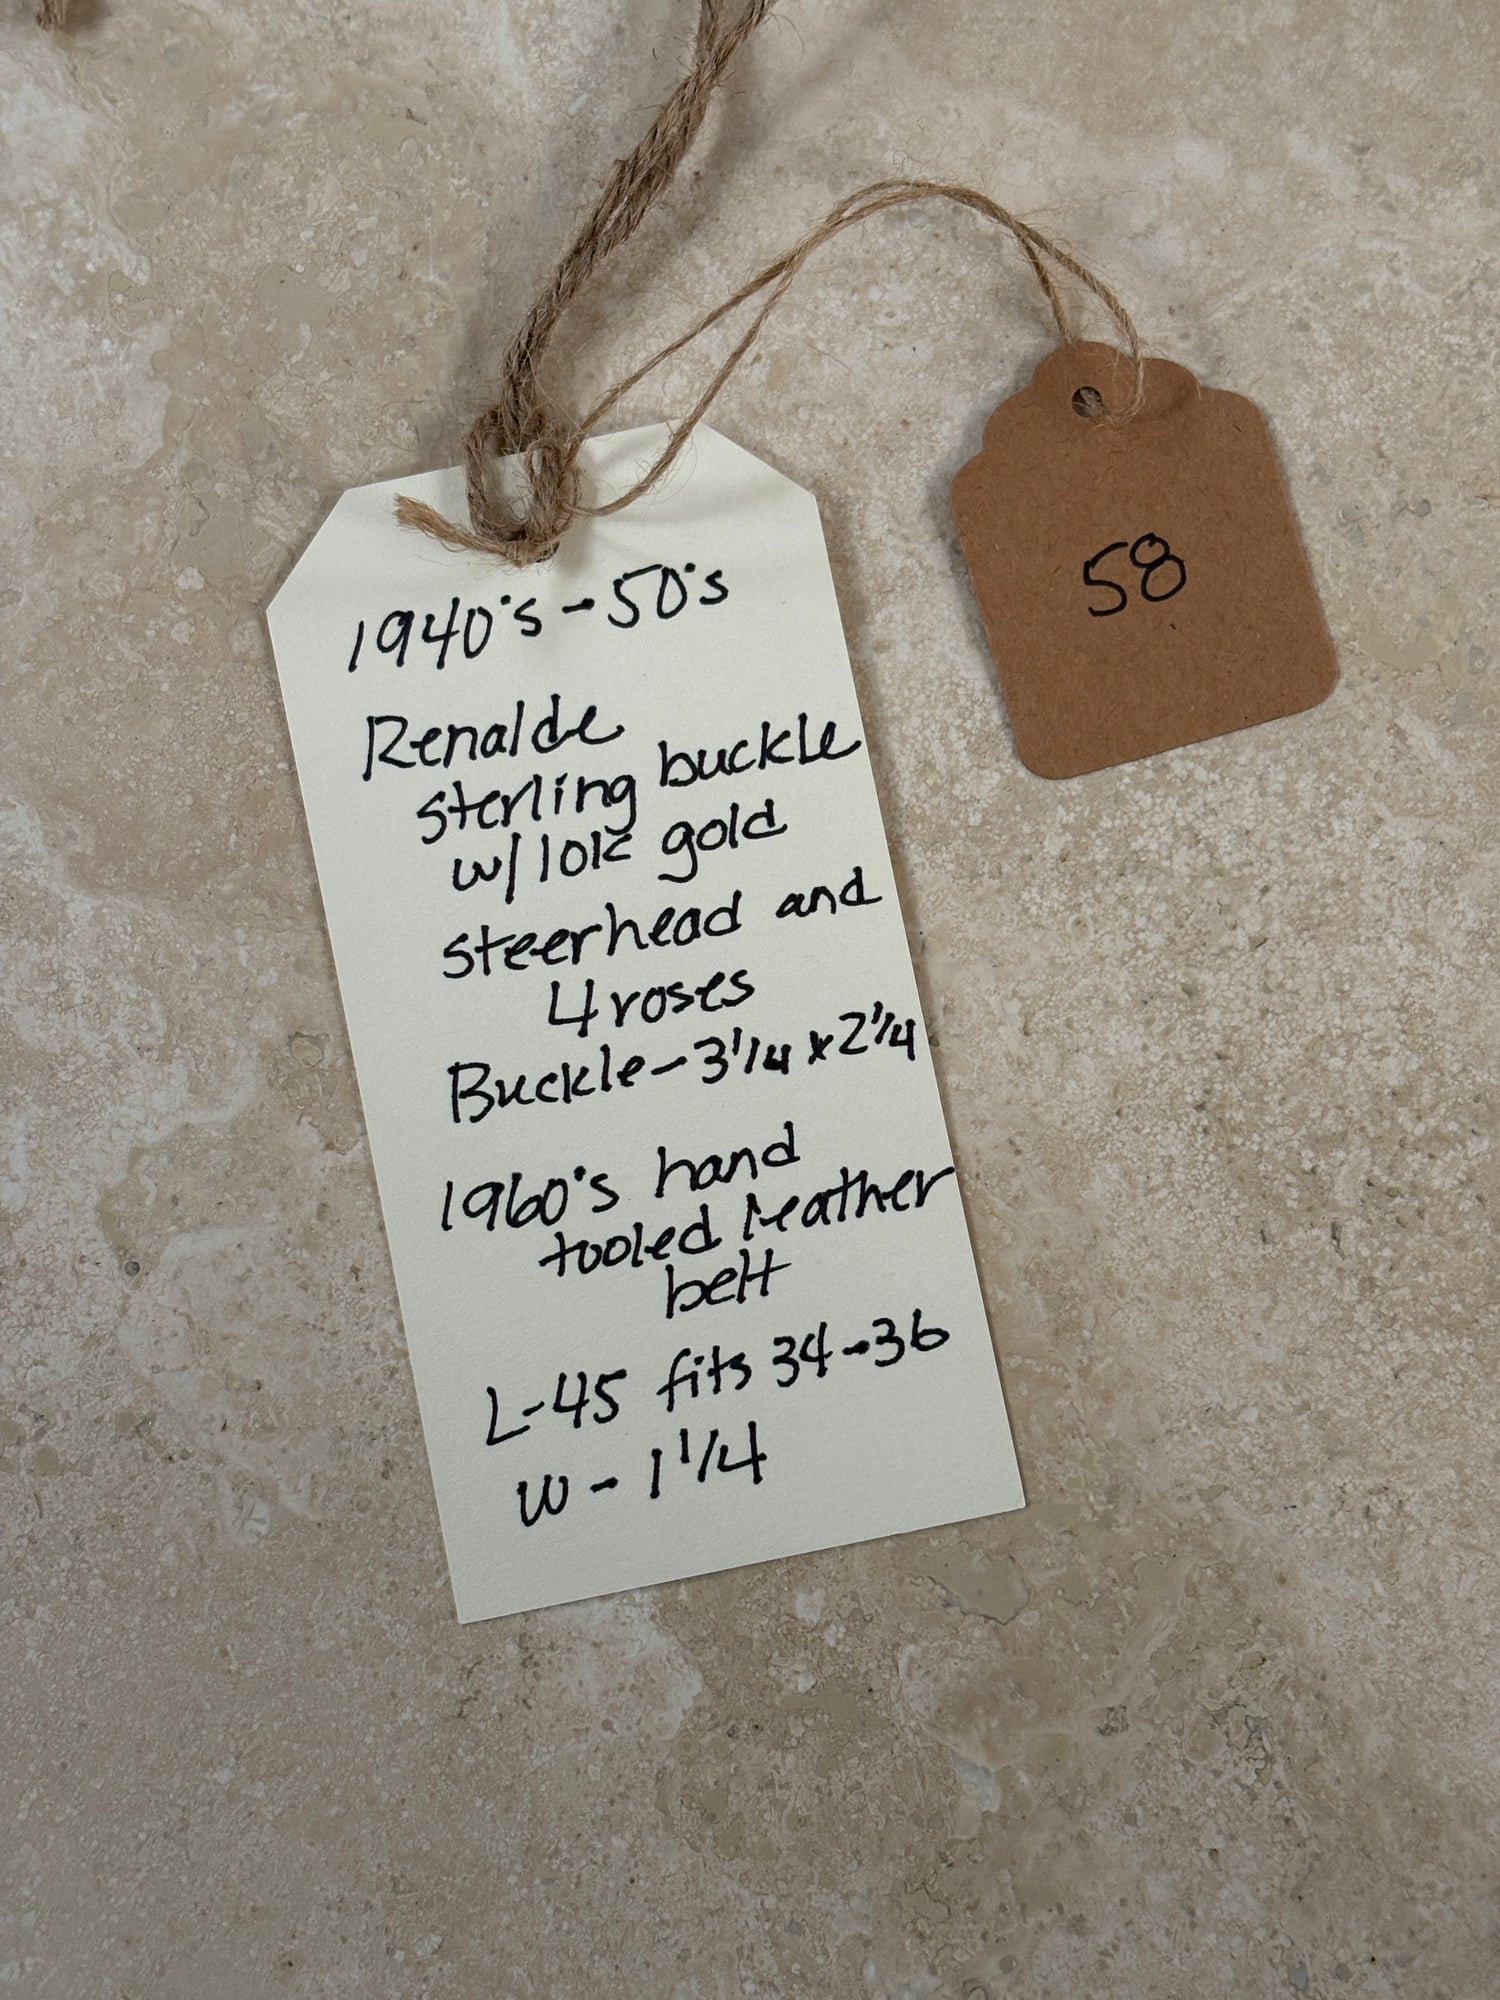 1940's - 50's
Renalde
sterling buckle
w/ 10k gold
steerhead and
4 roses
Buckle - 3 1/4 x 2 1/4
1960's hand
tooled leather
belt
L - 45 fits 34 - 36
W - 1 1/4
58